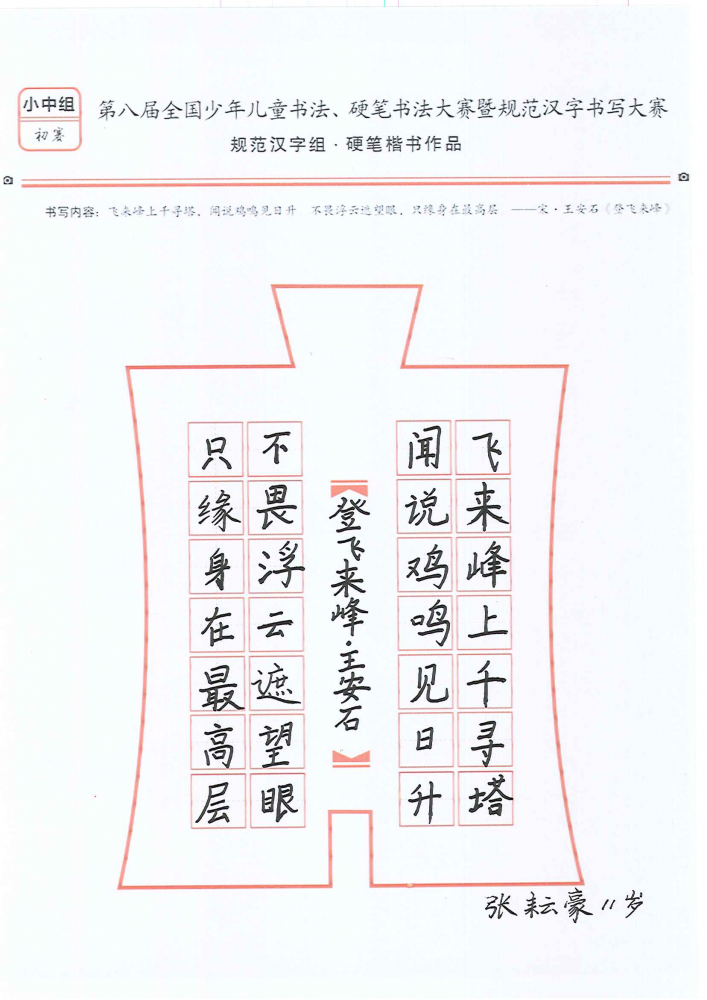 小中组
初赛
第八届全国少年儿童书法、硬笔书法大赛暨规范汉字书写大赛
规范汉字组·硬笔楷书作品
书写内容：飞来峰上千寻塔，闻说鸡鸣见日升。不畏浮云遮望眼，只缘身在最高层。——宋·王安石《登飞来峰》
飞来峰上千寻塔
闻说鸡鸣见日升
登飞来峰·王安石
不畏浮云遮望眼
只缘身在最高层
张耘豪11岁